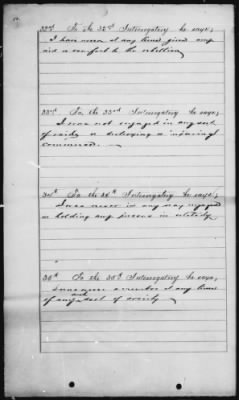 32nd To the 32nd Interrogatory he says;
I have never at any time given any
aid or comfort to the rebellion
33rd To the 33rd Interrogatory he says;
I was not engaged in any act
or destroying or injuring
commerce.
34th To the 34th Interrogatory he says;
I was never in any way engaged
in holding any person in
35th To the 35th Interrogatory he says,
a member at any time
of any society